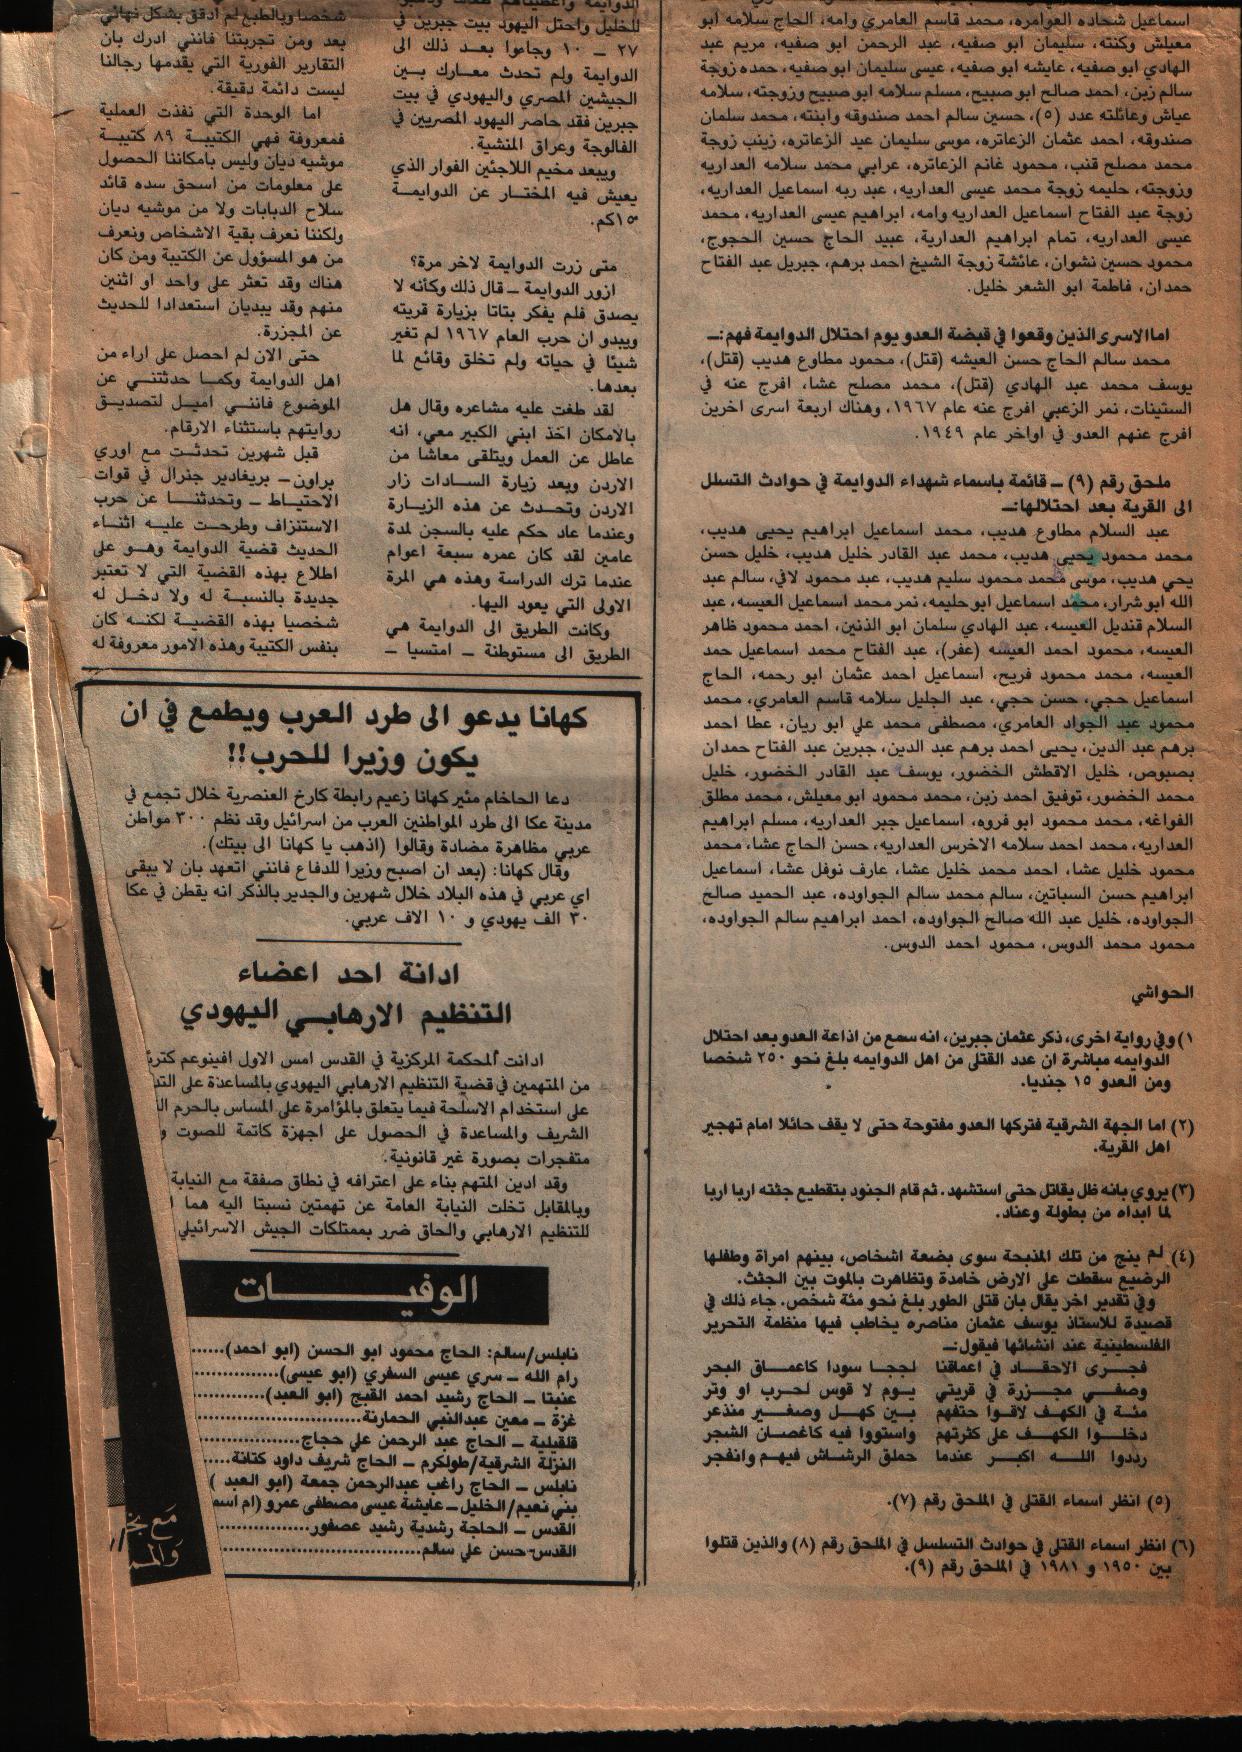 اسماعيل شحاده العوامره، محمد قاسم العامري وامه، الحاج سلامه ابو
معيلش وكنته، سليمان ابو صفيه، عبد الرحمن ابو صفيه، مريم عبد
الهادي ابو صفيه، عايشه ابو صفيه، عيسى سليمان ابو صفيه، حمده زوجة
سالم زبن، احمد صالح ابو صبيح، مسلم سلامه ابو صبيح وزوجته، سلامه
عياش وعائلته عدد (٥)، حسين سالم احمد صندوقه وابنته، محمد سلمان
صندوقه، احمد عثمان الزعاتره، موسى سليمان عبد الزعاتره، زينب زوجة
محمد مصلح قنب، محمود غانم الزعاتره، عرابي محمد سلامه العداربه
وزوجته، حليمه زوجة محمد عيسى العداربه، عبد ربه اسماعيل العداربه،
زوجة عبد الفتاح اسماعيل العداربه وامه، ابراهيم عيسى العداربه، محمد
عيسى العداربه، تمام ابراهيم العداربة، عبيد الحاج حسين الحجوج،
محمود حسين نشوان، عائشة زوجة الشيخ احمد برهم، جبريل عبد الفتاح
حمدان، فاطمة ابو الشعر خليل.
اما الاسرى الذين وقعوا في قبضة العدو يوم احتلال الدوايمة فهم:ـ
محمد سالم الحاج حسن العيشه (قتل)، محمود مطاوع هديب (قتل)،
يوسف محمد عبد الهادي (قتل)، محمد مصلح عشا، افرج عنه في
الستينات، نمر الزعبي افرج عنه عام ١٩٦٧، وهناك اربعة اسرى اخرين
افرج عنهم العدو في اواخر عام ١٩٤٩.
ملحق رقم (٩) ـ قائمة باسماء شهداء الدوايمة في حوادث التسلل
الى القرية بعد احتلالها:ـ
عبد السلام مطاوع هديب، محمد اسماعيل ابراهيم يحيى هديب،
محمد محمود يحيى هديب، محمد عبد القادر خليل هديب، خليل حسن
يحي هديب، موسى محمد محمود سليم هديب، عبد محمود لافي، سالم عبد
الله ابو شرار، محمد اسماعيل ابو حليمه، نمر محمد اسماعيل العيسه، عبد
السلام قنديل العيسه، عبد الهادي سلمان ابو الذنين، احمد محمود ظاهر
العيسه، محمود احمد العيسه (عفر)، عبد الفتاح محمد اسماعيل حمد
العيسه، محمد محمود فريح، اسماعيل احمد عثمان ابو رحمه، الحاج
اسماعيل حجي، حسن حجي، عبد الجليل سلامه قاسم العامري، محمد
محمود عبد الجواد العامري، مصطفى محمد علي ابو ريان، عطا احمد
برهم عبد الدين، يحيى احمد برهم عبد الدين، جبرين عبد الفتاح حمدان
بصبوص، خليل الاقطش الخضور، يوسف عبد القادر الخضور، خليل
محمد الخضور، توفيق احمد زبن، محمد محمود ابو معيلش، محمد مطلق
الفواغه، محمد محمود ابو فروه، اسماعيل جبر العداربه، مسلم ابراهيم
العداربه، محمد احمد سلامه الاخرس العداربه، حسن الحاج عشا، محمد
محمود خليل عشا، احمد محمد خليل عشا، عارف نوفل عشا، اسماعيل
ابراهيم حسن السباتين، سالم محمد سالم الجواوده، عبد الحميد صالح
الجواوده، خليل عبد الله صالح الجواوده، احمد ابراهيم سالم الجواوده،
محمود محمد الدوس، محمود احمد الدوس.
الحواشي
١) وفي رواية اخرى، ذكر عثمان جبرين، انه سمع من اذاعة العدو بعد احتلال
الدوايمه مباشرة ان عدد القتلى من اهل الدوايمه بلغ نحو ٢٥٠ شخصا
ومن العدو ١٥ جنديا.
(٢) اما الجهة الشرقية فتركها العدو مفتوحة حتى لا يقف حائلا امام تهجير
اهل القرية.
(٣) يروي بانه ظل يقاتل حتى استشهد. ثم قام الجنود بتقطيع جثته اربا اربا
لما ابداه من بطولة وعناد.
(٤) لم ينج من تلك المذبحة سوى بضعة اشخاص، بينهم امرأة وطفلها
الرضيع سقطت على الارض خامدة وتظاهرت بالموت بين الجثث.
وفي تقدير اخر يقال بان قتلى الطور بلغ نحو مئة شخص. جاء ذلك في
قصيدة للاستاذ يوسف عثمان مناصره يخاطب فيها منظمة التحرير
الفلسطينية عند انشائها فيقول:ـ
فجرى الاحقاد في اعماقنا لججا سودا كاعماق البحر
وصفي مجزرة في قريتي يوم لا قوس لحرب او وتر
مئة في الكهف لاقوا حتفهم بين كهل وصغير منذعر
دخلوا الكهف على كثرتهم واستووا فيه كاغصان الشجر
رددوا الله اكبر عندما حملق الرشاش فيهم وانفجر
(٥) انظر اسماء القتلى في الملحق رقم (٧).
(٦) انظر اسماء القتلى في حوادث التسلسل في الملحق رقم (٨) والذين قتلوا
بين ١٩٥٠ و ١٩٨١ في الملحق رقم (٩).
للخليل واحتل اليهود بيت جبرين في
٢٧ ـ ١٠ وجاءوا بعد ذلك الى
الدوايمة ولم تحدث معارك بين
الجيشين المصري واليهودي في بيت
جبرين فقد حاصر اليهود المصريين في
الفالوجة وعراق المنشية.
ويبعد مخيم اللاجئين الفوار الذي
يعيش فيه المختار عن الدوايمة
١٥كم.
متى زرت الدوايمة لاخر مرة؟
ازور الدوايمة ـ قال ذلك وكأنه لا
يصدق فلم يفكر بتاتا بزيارة قريته
ويبدو ان حرب العام ١٩٦٧ لم تغير
شيئا في حياته ولم تخلق وقائع لما
بعدها.
لقد طغت عليه مشاعره وقال هل
بالامكان اخذ ابني الكبير معي، انه
عاطل عن العمل ويتلقى معاشا من
الاردن وبعد زيارة السادات زار
الاردن وتحدث عن هذه الزيارة
وعندما عاد حكم عليه بالسجن لمدة
عامين لقد كان عمره سبعة اعوام
عندما ترك الدراسة وهذه هي المرة
الاولى التي يعود اليها.
وكانت الطريق الى الدوايمة هي
الطريق الى مستوطنة ـ امتسيا ـ
شخصا وبالطبع لم ادقق بشكل نهائي
بعد ومن تجربتنا فانني ادرك بان
التقارير الفورية التي يقدمها رجالنا
ليست دائمة دقيقة.
اما الوحدة التي نفذت العملية
فمعروفة فهي الكتيبة ٨٩ كتيبة
موشيه ديان وليس بامكاننا الحصول
على معلومات من اسحق سده قائد
سلاح الدبابات ولا من موشيه ديان
ولكننا نعرف بقية الاشخاص ونعرف
من هو المسؤول عن الكتيبة ومن كان
هناك وقد تعثر على واحد او اثنين
منهم وقد يبديان استعدادا للحديث
عن المجزرة.
حتى الان لم احصل على اراء من
اهل الدوايمة وكما حدثتني عن
الموضوع فانني اميل لتصديق
روايتهم باستثناء الارقام.
قبل شهرين تحدثت مع اوري
براون ـ بريغادير جنرال في قوات
الاحتياط ـ وتحدثنا عن حرب
الاستنزاف وطرحت عليه اثناء
الحديث قضية الدوايمة وهو على
اطلاع بهذه القضية التي لا تعتبر
جديدة بالنسبة له ولا دخل له
شخصيا بهذه القضية لكنه كان
بنفس الكتيبة وهذه الامور معروفة له
كهانا يدعو الى طرد العرب ويطمع في ان
يكون وزيرا للحرب!!
دعا الحاخام مئير كهانا زعيم رابطة كارخ العنصرية خلال تجمع في
مدينة عكا الى طرد المواطنين العرب من اسرائيل وقد نظم ٣٠٠ مواطن
عربي مظاهرة مضادة وقالوا (اذهب يا كهانا الى بيتك).
وقال كهانا: (بعد ان اصبح وزيرا للدفاع فانني اتعهد بان لا يبقى
اي عربي في هذه البلاد خلال شهرين والجدير بالذكر انه يقطن في عكا
٣٠ الف يهودي و ١٠ الاف عربي.
ادانة احد اعضاء
التنظيم الارهابي اليهودي
ادانت المحكمة المركزية في القدس امس الاول افينوعم
من المتهمين في قضية التنظيم الارهابي اليهودي بالمساعدة على
على استخدام الاسلحة فيما يتعلق بالمؤامرة على المساس بالحرم
الشريف والمساعدة في الحصول على اجهزة كاتمة للصوت و
متفجرات بصورة غير قانونية.
وقد ادين المتهم بناء على اعترافه في نطاق صفقة مع النيابة
وبالمقابل تخلت النيابة العامة عن تهمتين نسبتا اليه هما
للتنظيم الارهابي والحاق ضرر بممتلكات الجيش الاسرائيلي
الوفيات
نابلس/سالم: الحاج محمود ابو الحسن (ابو احمد)......
رام الله ـ سري عيسى السفري (ابو عيسى)..............
عنبتا ـ الحاج رشيد احمد القبج (ابو العبد)..............
غزة ـ معين عبدالنبي الحمارنة............................
قلقيلية ـ الحاج عبد الرحمن علي حجاج..................
النزلة الشرقية/طولكرم ـ الحاج شريف داود كتانة.....
نابلس ـ الحاج راغب عبدالرحمن جمعة (ابو العبد )
بني نعيم/الخليل ـ عايشة عيسى مصطفى عمرو (ام
القدس ـ الحاجة رشدية رشيد عصفور..................
القدس ـ حسن علي سالم..................................
مع